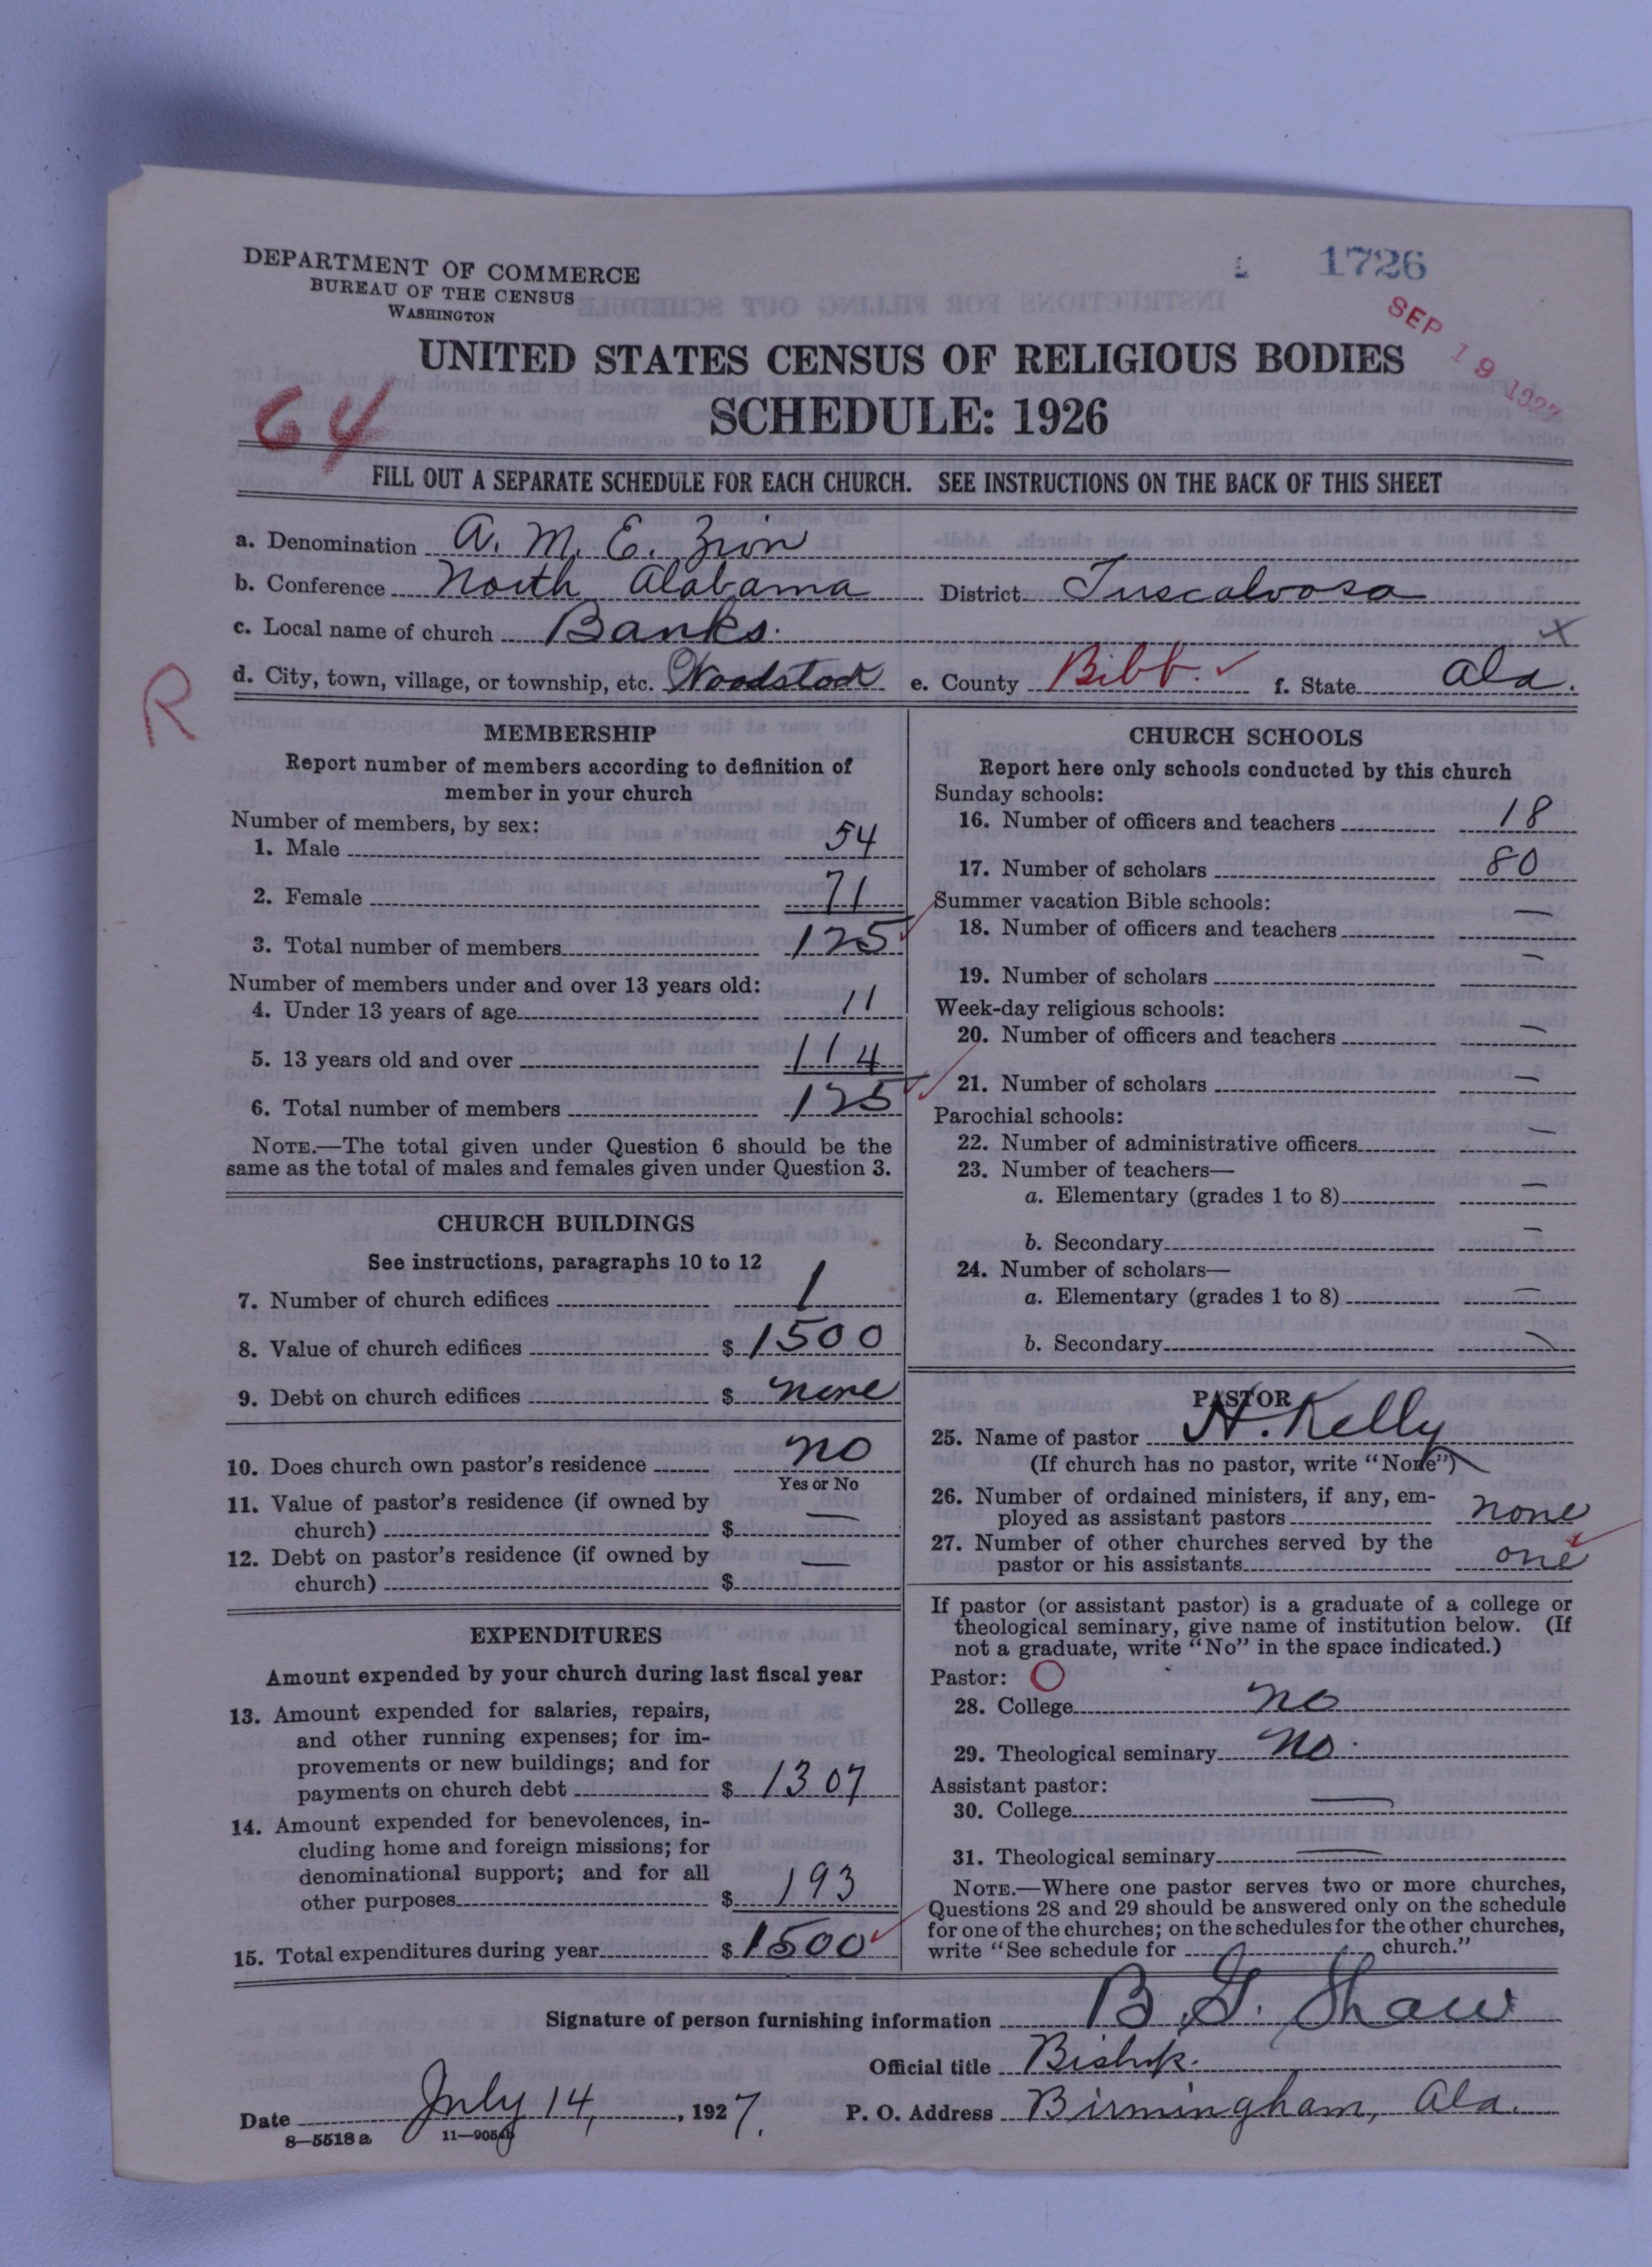 DEPARTMENT OF COMMERCE
BUREAU OF THE CENSUS
WASHINGTON
1726
SEP 19 1927
UNITED STATES CENSUS OF RELIGIOUS BODIES
SCHEDULE: 1926
64
FILL OUT A SEPARATE SCHEDULE FOR EACH CHURCH. SEE INSTRUCTIONS ON THE BACK OF THIS SHEET
a. Denomination A. M. E. Zion
b. Conference North Alabama District Tuscaloosa
c. Local name of church Banks. X
d. City, town, village, or township, etc. Woodstock e. County Bibb. ✓ f. State Ala.
R
MEMBERSHIP
Report number of members according to definition of
member in your church
Number of members, by sex:
1. Male 54
2. Female 71
3. Total number of members 125
Number of members under and over 13 years old:
4. Under 13 years of age 11
5. 13 years old and over 114
6. Total number of members 125
NOTE.—The total given under Question 6 should be the
same as the total of males and females given under Question 3.
CHURCH BUILDINGS
See instructions, paragraphs 10 to 12
7. Number of church edifices 1
8. Value of church edifices $ 1500
9. Debt on church edifices $ none
10. Does church own pastor's residence no
Yes or No
11. Value of pastor's residence (if owned by
church) $ —
12. Debt on pastor's residence (if owned by
church) $ —
EXPENDITURES
Amount expended by your church during last fiscal year
13. Amount expended for salaries, repairs,
and other running expenses; for im-
provements or new buildings; and for
payments on church debt $ 1307
14. Amount expended for benevolences, in-
cluding home and foreign missions; for
denominational support; and for all
other purposes $ 193
15. Total expenditures during year $ 1500
CHURCH SCHOOLS
Report here only schools conducted by this church
Sunday schools:
16. Number of officers and teachers 18
17. Number of scholars 80
Summer vacation Bible schools:
18. Number of officers and teachers —
19. Number of scholars —
Week-day religious schools:
20. Number of officers and teachers —
21. Number of scholars —
Parochial schools:
22. Number of administrative officers —
23. Number of teachers—
a. Elementary (grades 1 to 8) —
b. Secondary —
24. Number of scholars—
a. Elementary (grades 1 to 8) —
b. Secondary —
PASTOR
25. Name of pastor H. Kelly
(If church has no pastor, write "None")
26. Number of ordained ministers, if any, em-
ployed as assistant pastors none
27. Number of other churches served by the
pastor or his assistants one
If pastor (or assistant pastor) is a graduate of a college or
theological seminary, give name of institution below. (If
not a graduate, write "No" in the space indicated.)
Pastor: O
28. College no
29. Theological seminary no
Assistant pastor:
30. College —
31. Theological seminary —
NOTE.—Where one pastor serves two or more churches,
Questions 28 and 29 should be answered only on the schedule
for one of the churches; on the schedules for the other churches,
write "See schedule for church."
Signature of person furnishing information B. G. Shaw
Official title Bishop.
Date July 14, 1927. P. O. Address Birmingham, Ala.
8—5518 a 11—9054b